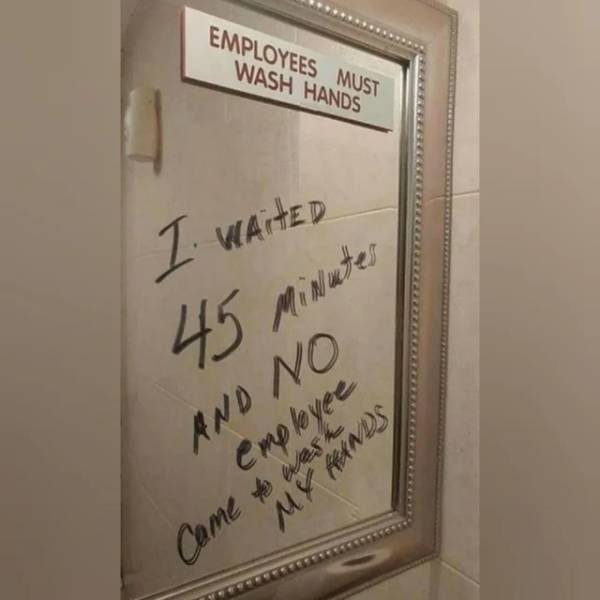 EMPLOYEES MUST
WASH HANDS
I WAITED
45 MINUtes
AND NO
employee
Came to wash
MY HANDS